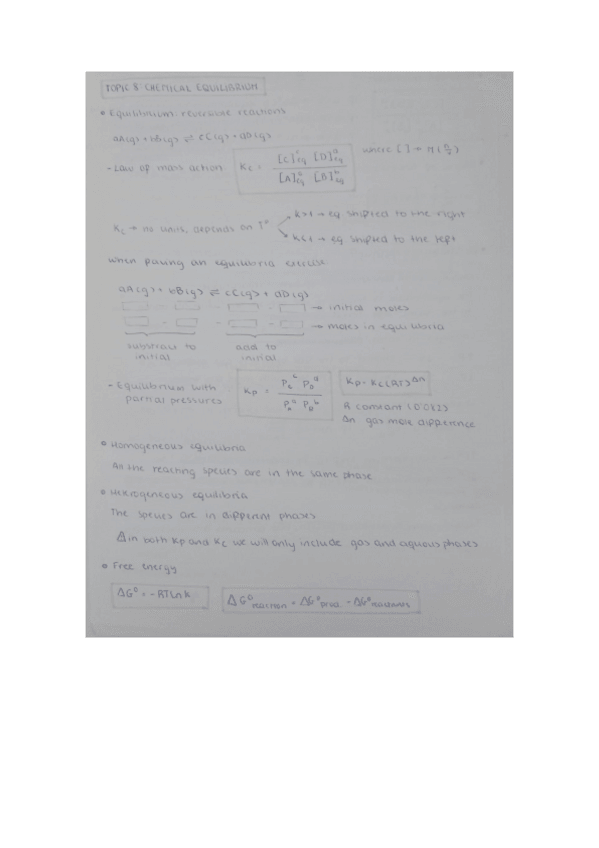 TOPIC 8 CHEMICAL EQUILIBRIUM
• Equilibrium: reversible reactions
aA(g) + bB(g) ⇌ cC(g) + dD(g)
- Law of mass action Kc = [C]^c eq [D]^d eq / [A]^a eq [B]^b eq where [ ] →
Kc → no units, depends on Tº
k>1 → eq shifted to the right
k<1 → eq shifted to the left
when an equilibria exercise
aA(g) + bB(g) ⇌ cC(g) + dD(g)
→ initial moles
→ moles in equilibria
add to
initial initial
- Equilibrium with partial pressures
Kp = Pc^c PD^d / PA^a PB^b
Kp = Kc(RT)^Δn
R constant (0.082)
Δn gas mole difference
• Homogeneous equilibria
All the reacting species are in the same phase
• equilibria
The species are in different phases
⚠ in both Kp and Kc we will only include gas and aqueous phases
• Free energy
ΔGº = -RTLnk
ΔGº reaction = ΔGº prod. - ΔGº reactants